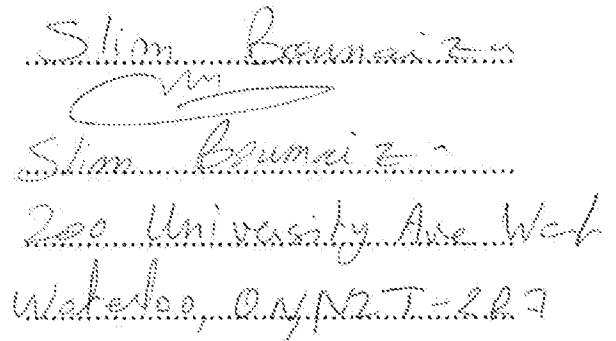 Slim Boumaiza
Slim Boumaiza
200 University Ave West
Waterloo, ON, N2T-2R7